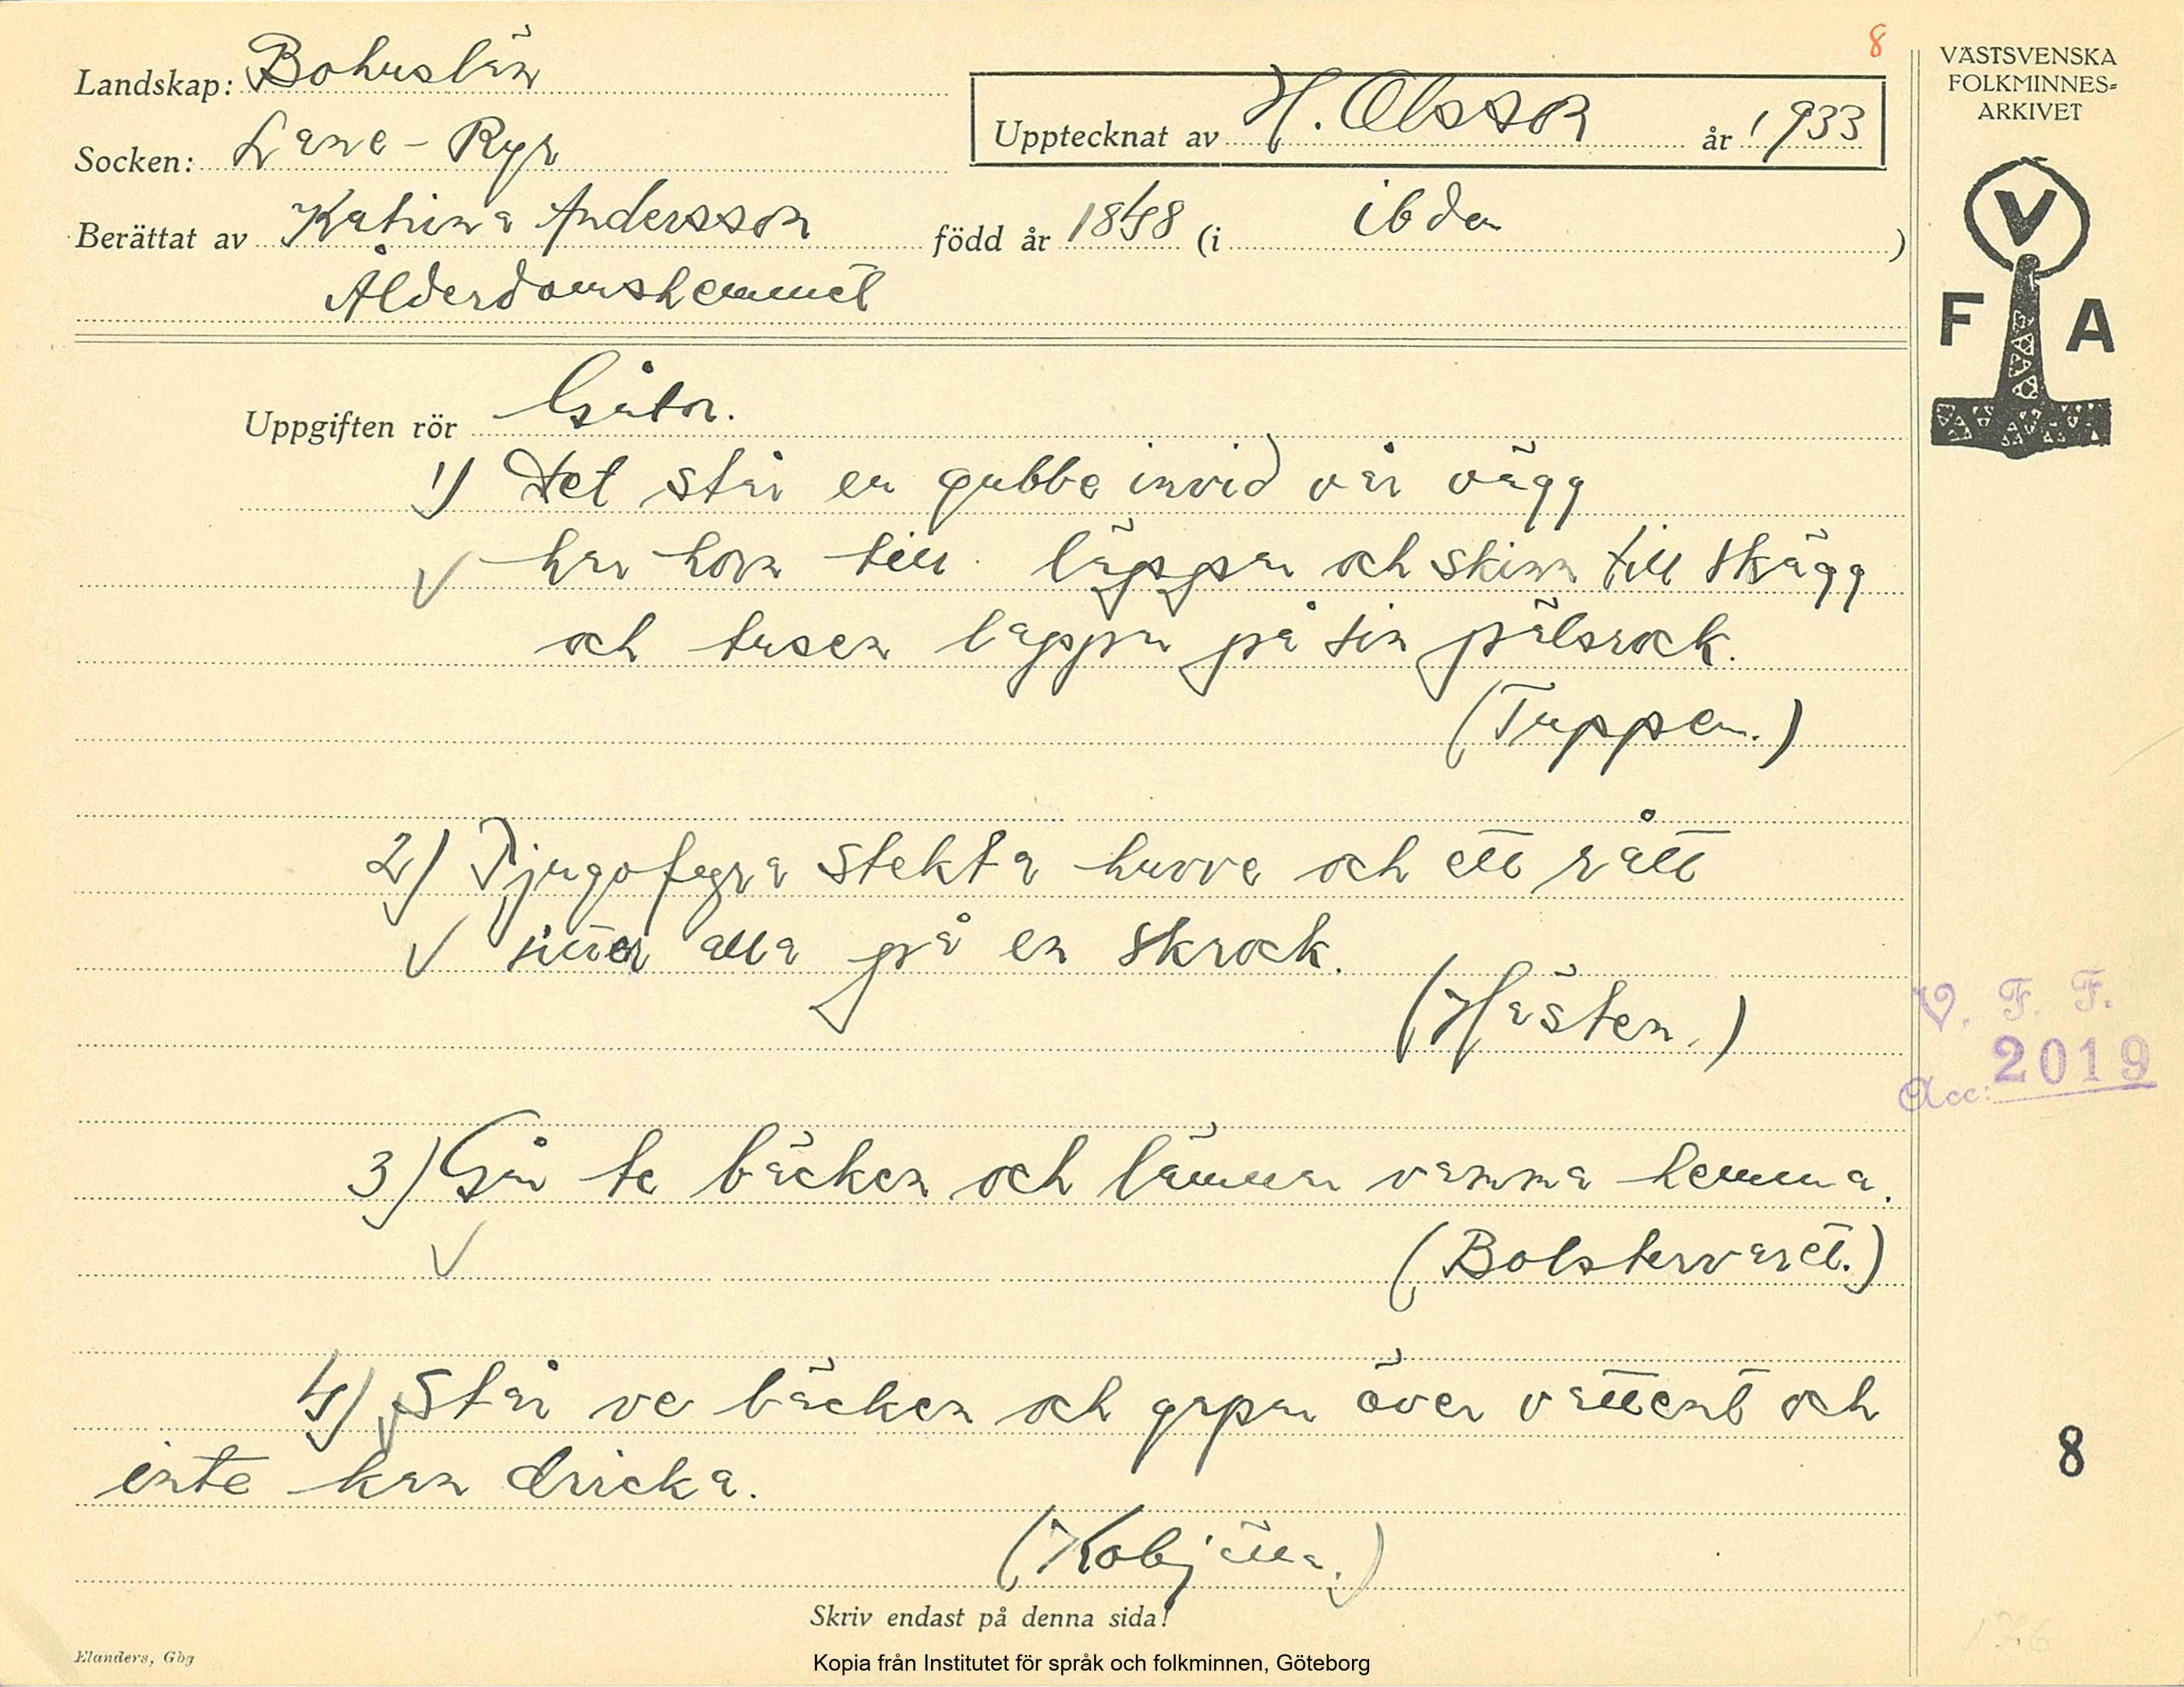 8
VÄSTSVENSKA
FOLKMINNES-
ARKIVET
Landskap: Bohuslän
Upptecknat av H. Olsson år 1933
Socken: Lane-Ryr
Berättat av Katrina Andersson född år 1848 (i ibden )
Ålderdomshemmet
V
F A
Uppgiften rör Gåtor.
1) Det står en gubbe invid vår vägg
har horn till läppar och skinn till skägg
och tusen lappar på sin pälsrock.
(Tuppen.)
2) Tjugofyra stekta huvve och ett rått
sitter alla på en skrock.
(Hästen.)
V. F. F.
Acc: 2019
3) Går te bäcken och lämnar vamma hemma.
(Bolstervaret.)
4) Står ve bäcken och gapar över vattent och
inte kan dricka.
8
(Kobjälla.)
Skriv endast på denna sida!
Elanders, Gbg
Kopia från Institutet för språk och folkminnen, Göteborg